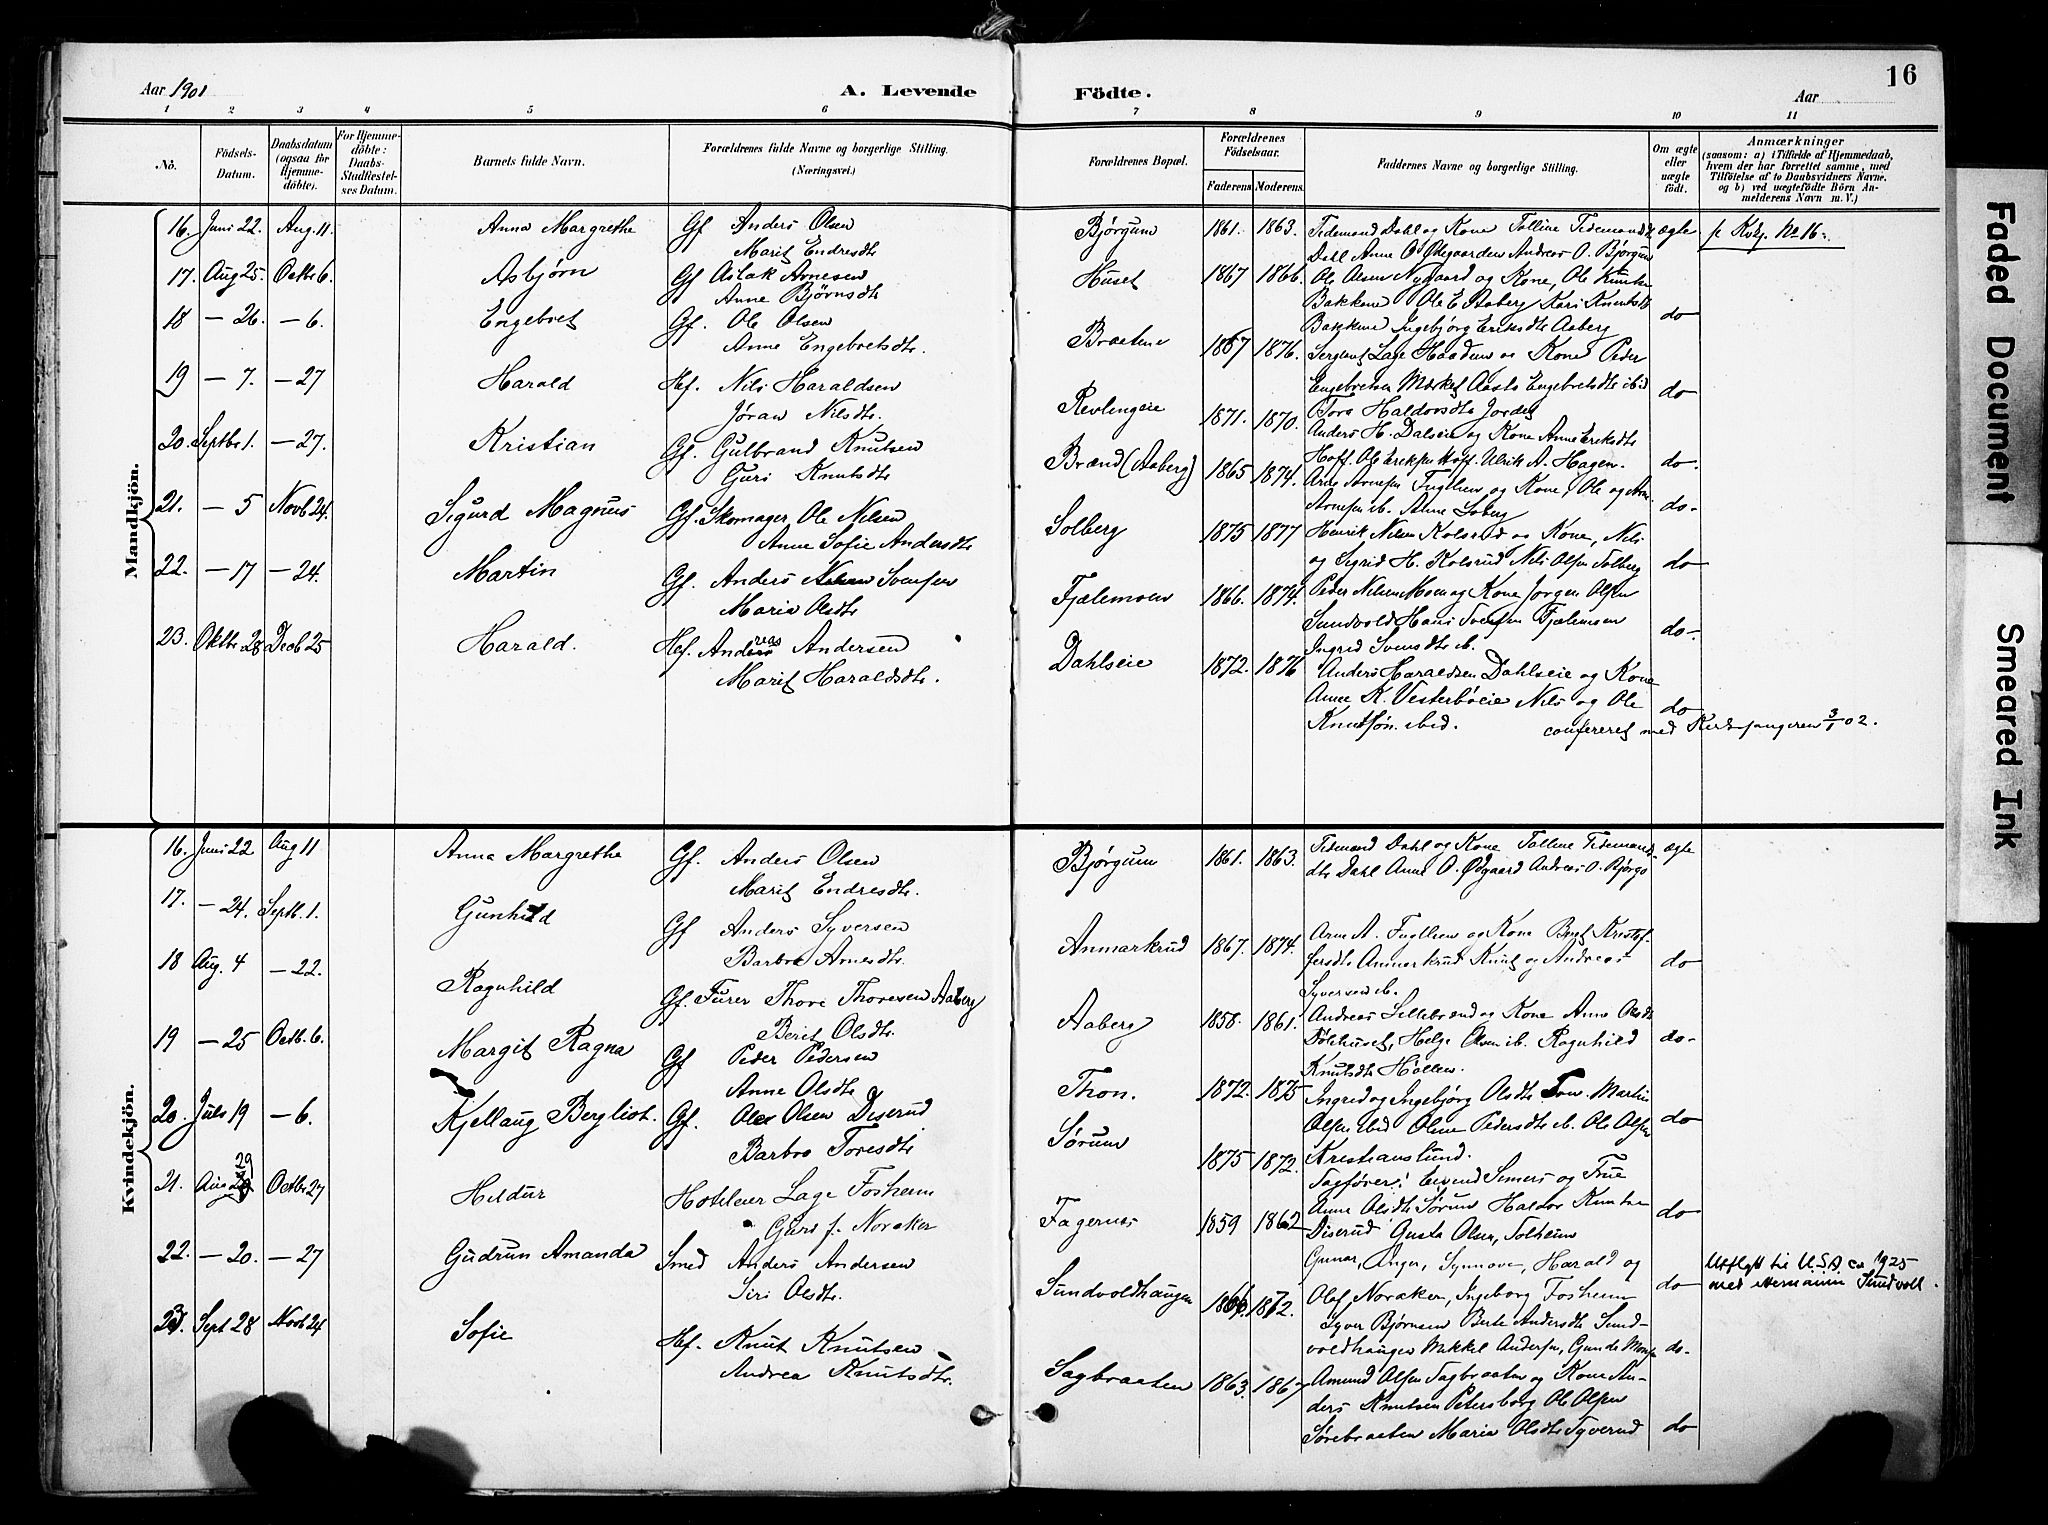 16
Aar 1901
A. Levende
Födte.
Aar
1 2 3 4 5 6 7 8 9 10 11
No.
Födsels-Datum.
Daabsdatum (ogsaa for Hjemme-döbte).
For Hjemme-döbte: Daabs-Stadfæstel-ses Datum.
Barnets fulde Navn.
Forældrenes fulde Navne og borgerlige Stilling. (Næringsvei.)
Forældrenes Bopæl.
Forældrenes Födselsaar.
Faderens Moderens.
Faddernes Navne og borgerlige Stilling.
Om ægte eller uægte födt.
Anmærkninger
(saasom: a) i Tilfælde af Hjemmedaab, hvem der har forrettet samme, med Tilföielse af to Daabsvidners Navne, og b) ved uægtefödte Börn An-melderens Navn m. V.)
Mandkjön.
16. Juni 22. Aug. 11. Anna Margrethe Gf Anders Olsen
Marit Endresdtr
Bjørgum 1861. 1863. Tidemand Dahl og Kone Tolline Tidemandsdtr ægte
Dahl Anne O Ødegaarden Andreas O. Bjørgum
f Kvkj. No 16.
17. Aug 25. Octbr 6. Asbjørn Gf Aslak Arnesen
Anne Bjørnsdtr
Huset 1867 1866. Ole Nygaard og Kone, Ole Knutsen
Bakkene Ole E Aaberg Kari Knutsdtr
Bakkene Ingebjørg Eriksdtr Aaberg do
18 — 26. — 6. Engebret Gf. Ole Olsen
Anne Engebretsdtr.
Braatene 1867 1876. Sergeant Lage Haadem og Kone Peder
Engebretsen Aasta Engebretsdtr ibid do
Tora Haldorsdtr
19 — 7. — 27 Harald Hef. Nils Haraldsen
Jøran Nilsdtr.
Revlingeie 1871. 1870. Anders H. Dalseie og Kone Anne Eriksdtr
Hoff. Ole Eriksen Hoff. Ulrik A. Hagen. do.
20. Septbr 1. — 27. Kristian Gf. Gulbrand Knutsen
Guri Knutsdtr
Brænd (Aaberg) 1865 1874. Arne Arnesen Fuglien og Kone, Ole og Arne
Arnesen ib. Anne do-
21. — 5 Novb 24. Sigurd Magnus Gf. Skomager Ole Nilsen
Anne Sofie Andersdtr
Solberg 1875 1877 Henrik Nilsen Kolsrud og Kone, Nils
og Sigrid H. Kolsrud Nils Olsen Solberg do
22. — 17 — 24. Martin Gf. Anders Svensen
Maria Olsdtr
Fjælemoen 1866. 1874. Peder Nilsen Moen og Kone Jørgen Olsen
Sundvold Hans Svensen Fjælemoen
Ingrid Svensdtr ib. do-
23. Oktbr 28 Decb 25 Harald. Hef. Andreas Andersen
Marit Haraldsdtr.
Dahlseie 1872. 1876 Anders Haraldsen Dahlseie og Kone
Anne K. Vesterbøeie Nils og Ole do
Knutsøn ibid. confereret med Kirkesangeren 3/1 02.
Kvindekjön.
16. Juni 22 Aug 11 Anna Margrethe Gf. Anders Olsen
Marit Endresdtr.
Bjørgum 1861. 1863. Tidemand Dahl og Kone Tolline Tidemands- ægte
dtr Dahl Anne O. Ødgaard Andreas O. Bjørgo
17. — 24. Septb. 1. Gunhild Gf Anders Syversen
Barbro Arnesdtr.
Anmarkrud 1867. 1874. Arne A. Fuglien og Kone Kristof-
fersdtr Anmarkrud Knut og Andreas
Syversen ib. do
18 Aug. 4 — 22. Ragnhild Gf. Furer Thore Thoresen Aaberg
Berit Olsdtr.
Aaberg 1858. 1861. Andreas Lillebrænd og Kone Anne Olsdtr
Helge Olsen ib. Ragnhild do-
Knutsdtr Høllen.
19 — 25 Octb. 6. Margit Ragna Gf Peder Pedersen
Anne Olsdtr
Thon. 1872. 1875 Ingrid og Ingebjørg Olsdtr Martin
Olsen ibid Oline Pedersdtr ib. Ole Olsen do
Kristianslund.
20. Juli 19 — 6. Kjellaug Bergliot. Gf. Ole Olsen Diserud
Barbro Toresdtr
Sørum 1875 1872. Sagfører Simers og Frue
Anne Olsdtr Sørum Haldor Knutsen
Diserud Gusta Olsen, Solheim do
21. Aug 29 Octbr 27 Heldur Hoteleier Lage Fosheim
Guri f. Noraker
Fagernes 1859 1862 Gunar, Inger, Synnøve, Harald og
Olaf Noraker, Ingeborg Fosheim do
22. — 20. — 27 Gudrun Amanda Smed Anders Andersen
Siri Olsdtr.
Sundvoldhaugen 1866. 1872. Syver Bjørnsen Berte Andersdtr Sund-
voldhaugen Mikkel Andersen, do-
Utflytt til U.S.A. ca 1925
med Hermann Sundvoll.
23. Sept 28 Novb 24 Sofie Hef. Knut Knutsen
Andrea Knutsdtr.
Sagbraaten 1863. 1867 Amund Olsen Sagbraaten og Kone An-
ders Knutsen Petersborg Ole Olsen
Sørebraaten Maria Olsdtr Syverud do
Faded Document
Smeared Ink